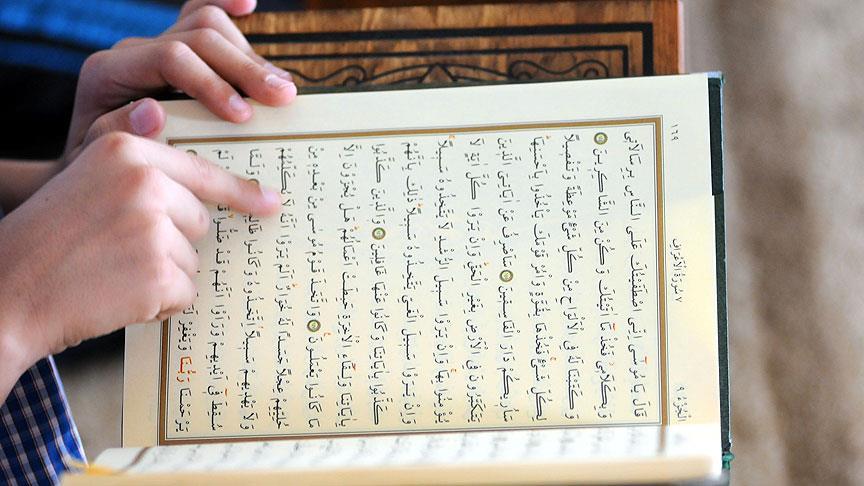 ١٦٩
٧ سُورَةُ الْاَعْرَافِ
اَلْجُزْءُ ٩
قَالَ يَا مُوسٰٓى اِنِّى اصْطَفَيْتُكَ عَلَى النَّاسِ بِرِسَالَاتى
وَبِكَلَامى فَخُذْ مَٓا اٰتَيْتُكَ وَكُنْ مِنَ الشَّاكِرينَ
وَكَتَبْنَا لَهُ فِى الْاَلْوَاحِ مِنْ كُلِّ شَىْءٍ مَوْعِظَةً وَتَفْصيلًا
لِكُلِّ شَىْءٍ فَخُذْهَا بِقُوَّةٍ وَأْمُرْ قَوْمَكَ يَأْخُذُوا بِاَحْسَنِهَا
سَاُريكُمْ دَارَ الْفَاسِقينَ سَاَصْرِفُ عَنْ اٰيَاتِىَ الَّذينَ
يَتَكَبَّرُونَ فِى الْاَرْضِ بِغَيْرِ الْحَقِّ وَاِنْ يَرَوْا كُلَّ اٰيَةٍ لَا
يُؤْمِنُوا بِهَا وَاِنْ يَرَوْا سَبيلَ الرُّشْدِ لَا يَتَّخِذُوهُ سَبيلًا
وَاِنْ يَرَوْا سَبيلَ الْغَىِّ يَتَّخِذُوهُ سَبيلًا ذٰلِكَ بِاَنَّهُمْ
كَذَّبُوا بِاٰيَاتِنَا وَكَانُوا عَنْهَا غَافِلينَ وَالَّذينَ كَذَّبُوا
بِاٰيَاتِنَا وَلِقَٓاءِ الْاٰخِرَةِ حَبِطَتْ اَعْمَالُهُمْ هَلْ يُجْزَوْنَ اِلَّا
مَا كَانُوا يَعْمَلُونَ وَاتَّخَذَ قَوْمُ مُوسٰى مِنْ بَعْدِه مِنْ
حُلِيِّهِمْ عِجْلًا جَسَدًا لَهُ خُوَارٌ اَلَمْ يَرَوْا اَنَّهُ لَا يُكَلِّمُهُمْ
وَلَا يَهْديهِمْ سَبيلًا اِتَّخَذُوهُ وَكَانُوا ظَالِمينَ وَلَمَّا
سُقِطَ فى اَيْديهِمْ وَرَاَوْا اَنَّهُمْ قَدْ ضَلُّوا لَمْ
يَرْحَمْنَا رَبُّنَا وَيَغْفِرْ